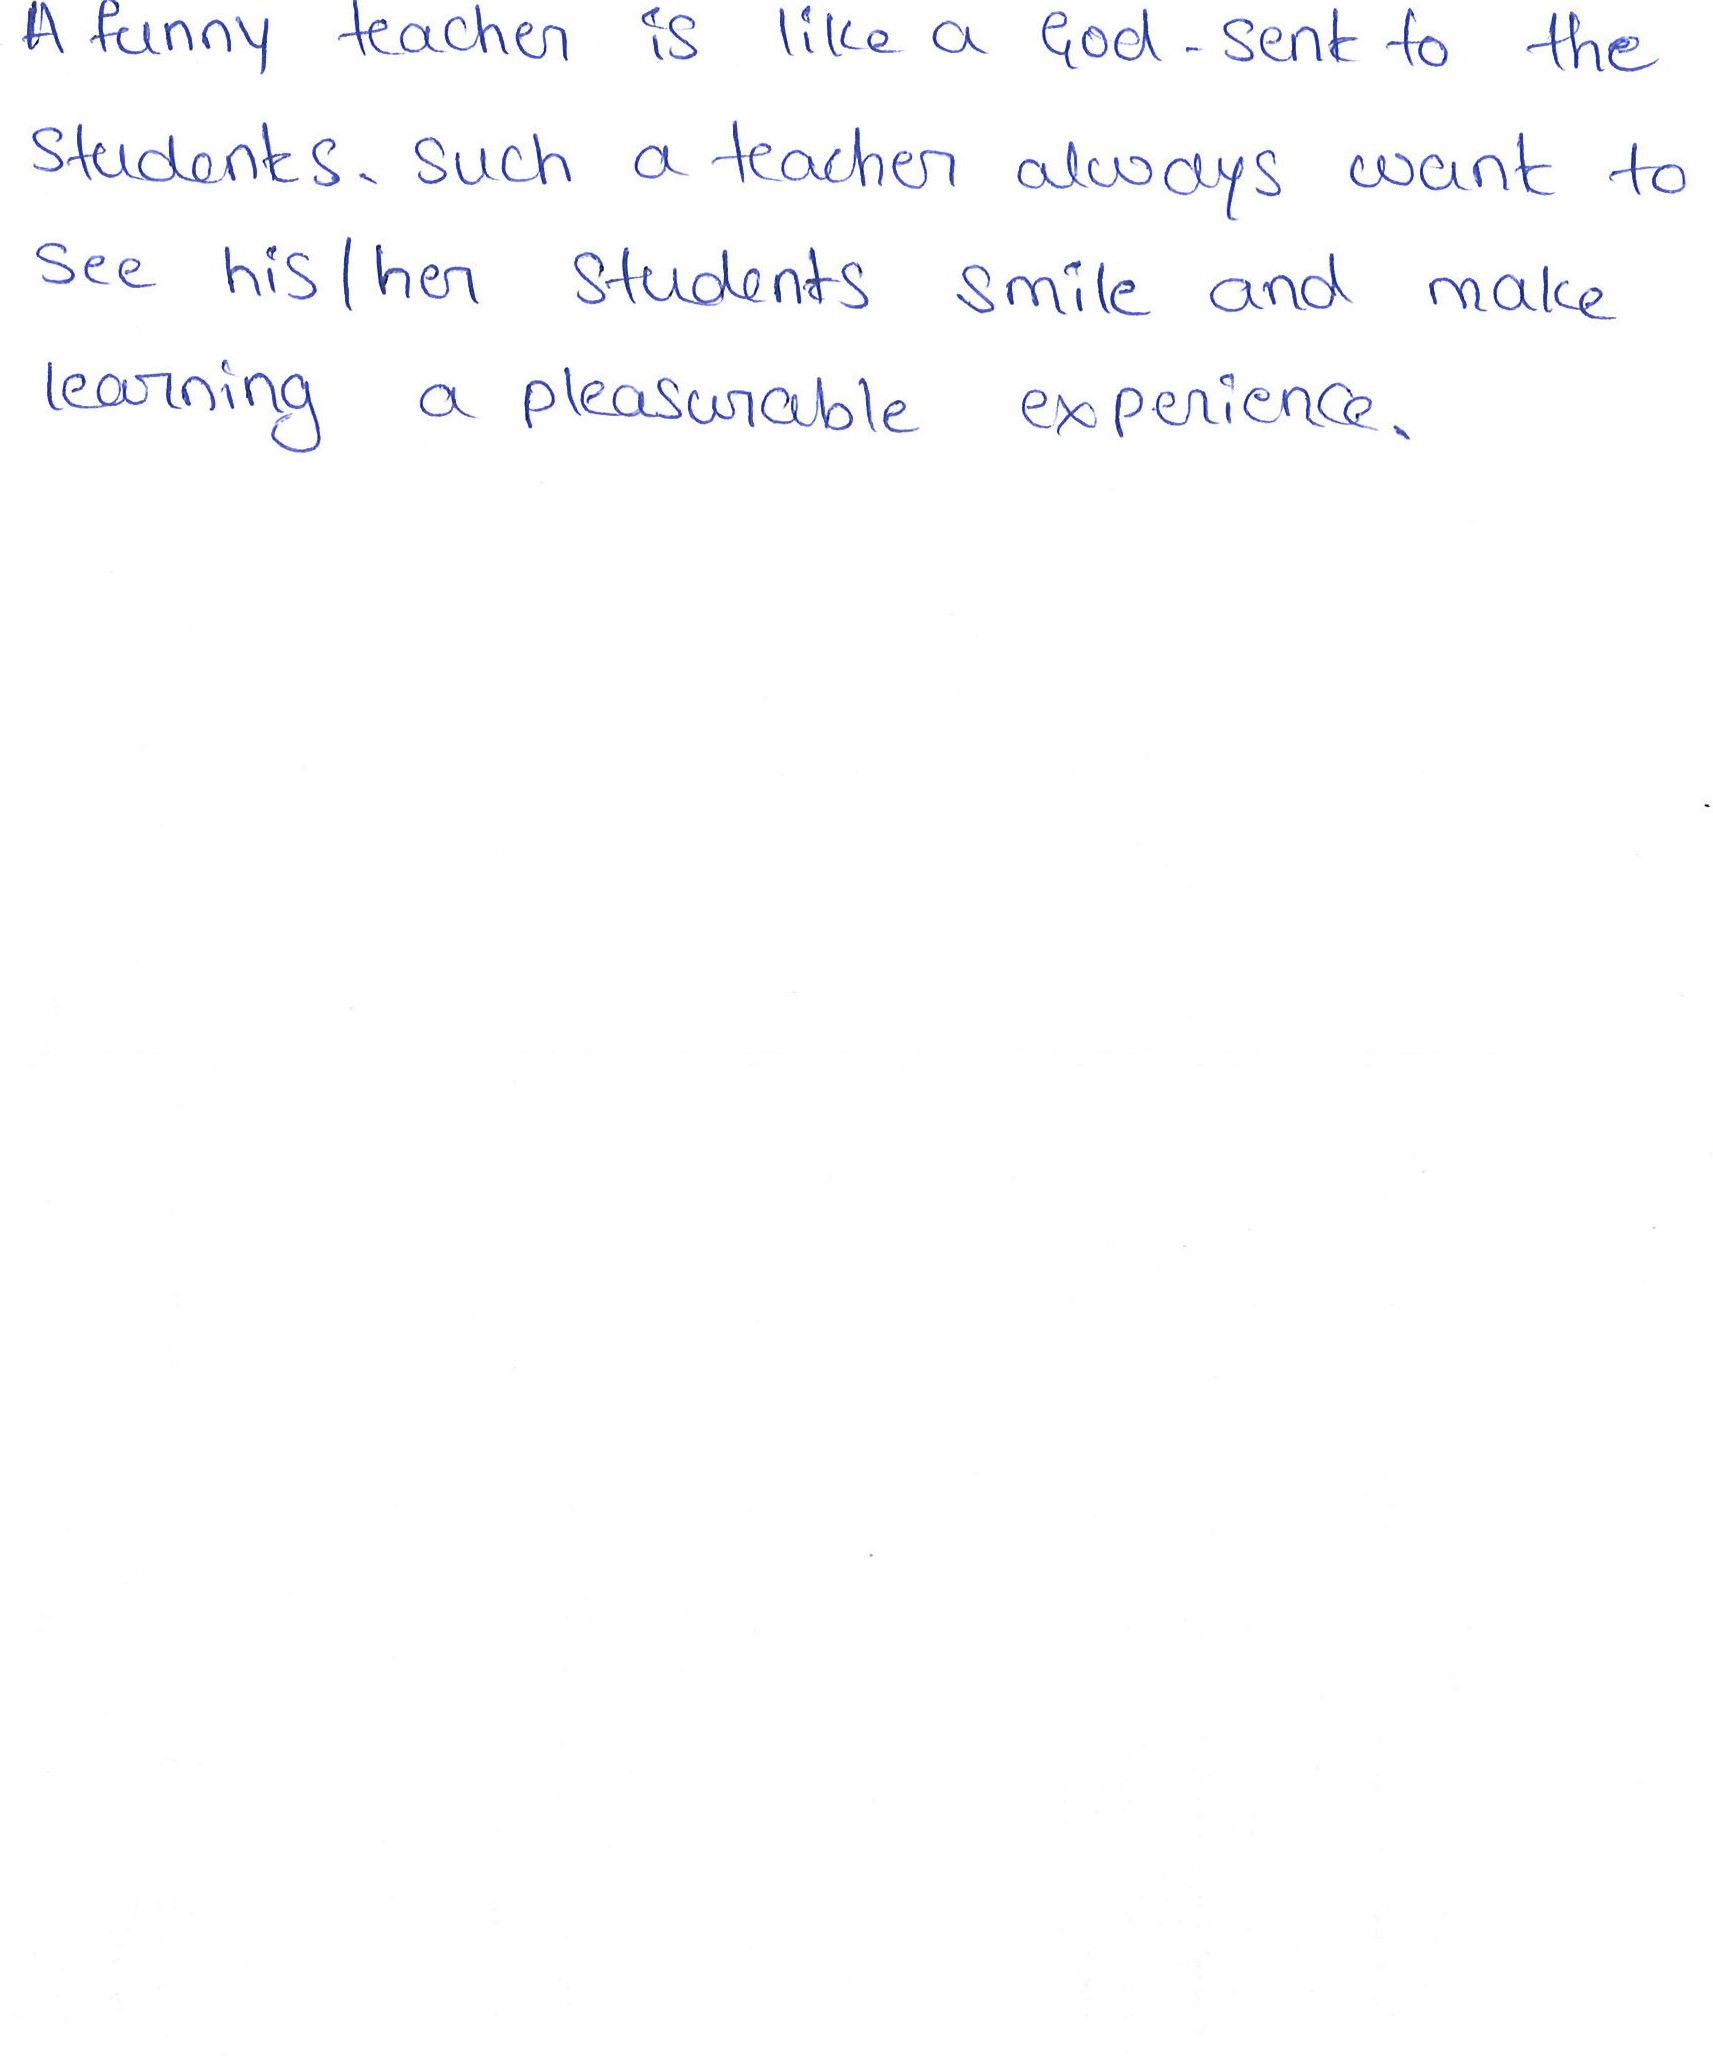 A funny teacher is like a God-sent to the
students. Such a teacher always want to
see his/her students smile and make
learning a pleasurable experience.